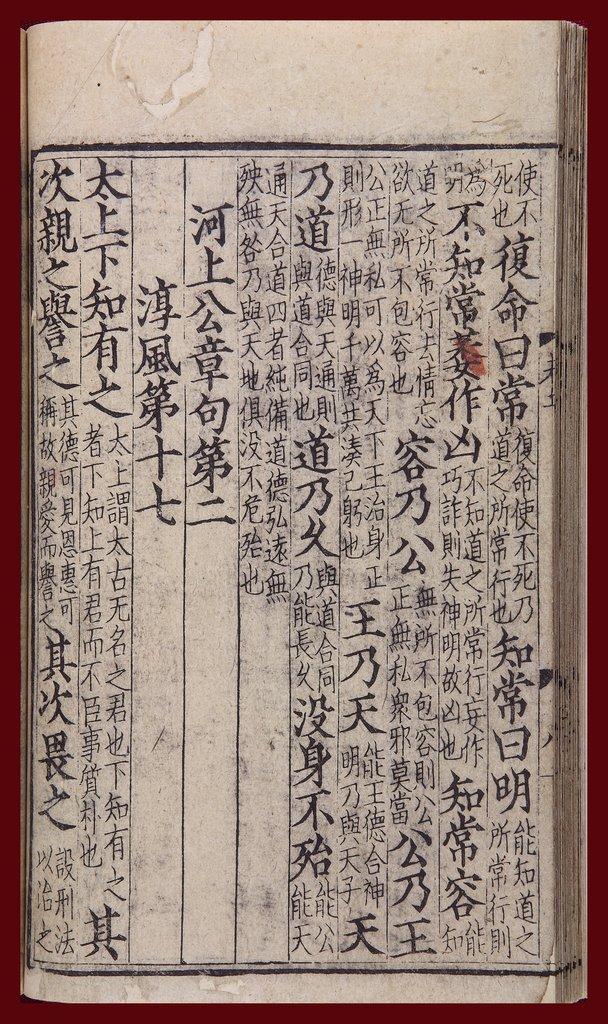 使不死也復命曰常復命使不死乃道之所常行也知常曰明能知道之所常行則
為明不知常妄作凶不知道之所常行妄作巧詐則失神明故凶也知常容能知
道之所常行去情忘欲无所不包容也容乃公無所不包容則公正無私衆邪莫當公乃王
公正無私可以為天下王治身正則形一神明千萬共湊己躬也王乃天能王德合神明乃與天子天
乃道德與天通則與道合同也道乃久與道合同乃能長久没身不殆能公能天
通天合道四者純備道德弘遠無殃無咎乃與天地俱没不危殆也
河上公章句第二
淳風第十七
太上下知有之太上謂太古无名之君也下知有之者下知上有君而不臣事質朴也其
次親之譽之其德可見恩惠可稱故親愛而譽之其次畏之設刑法以治之